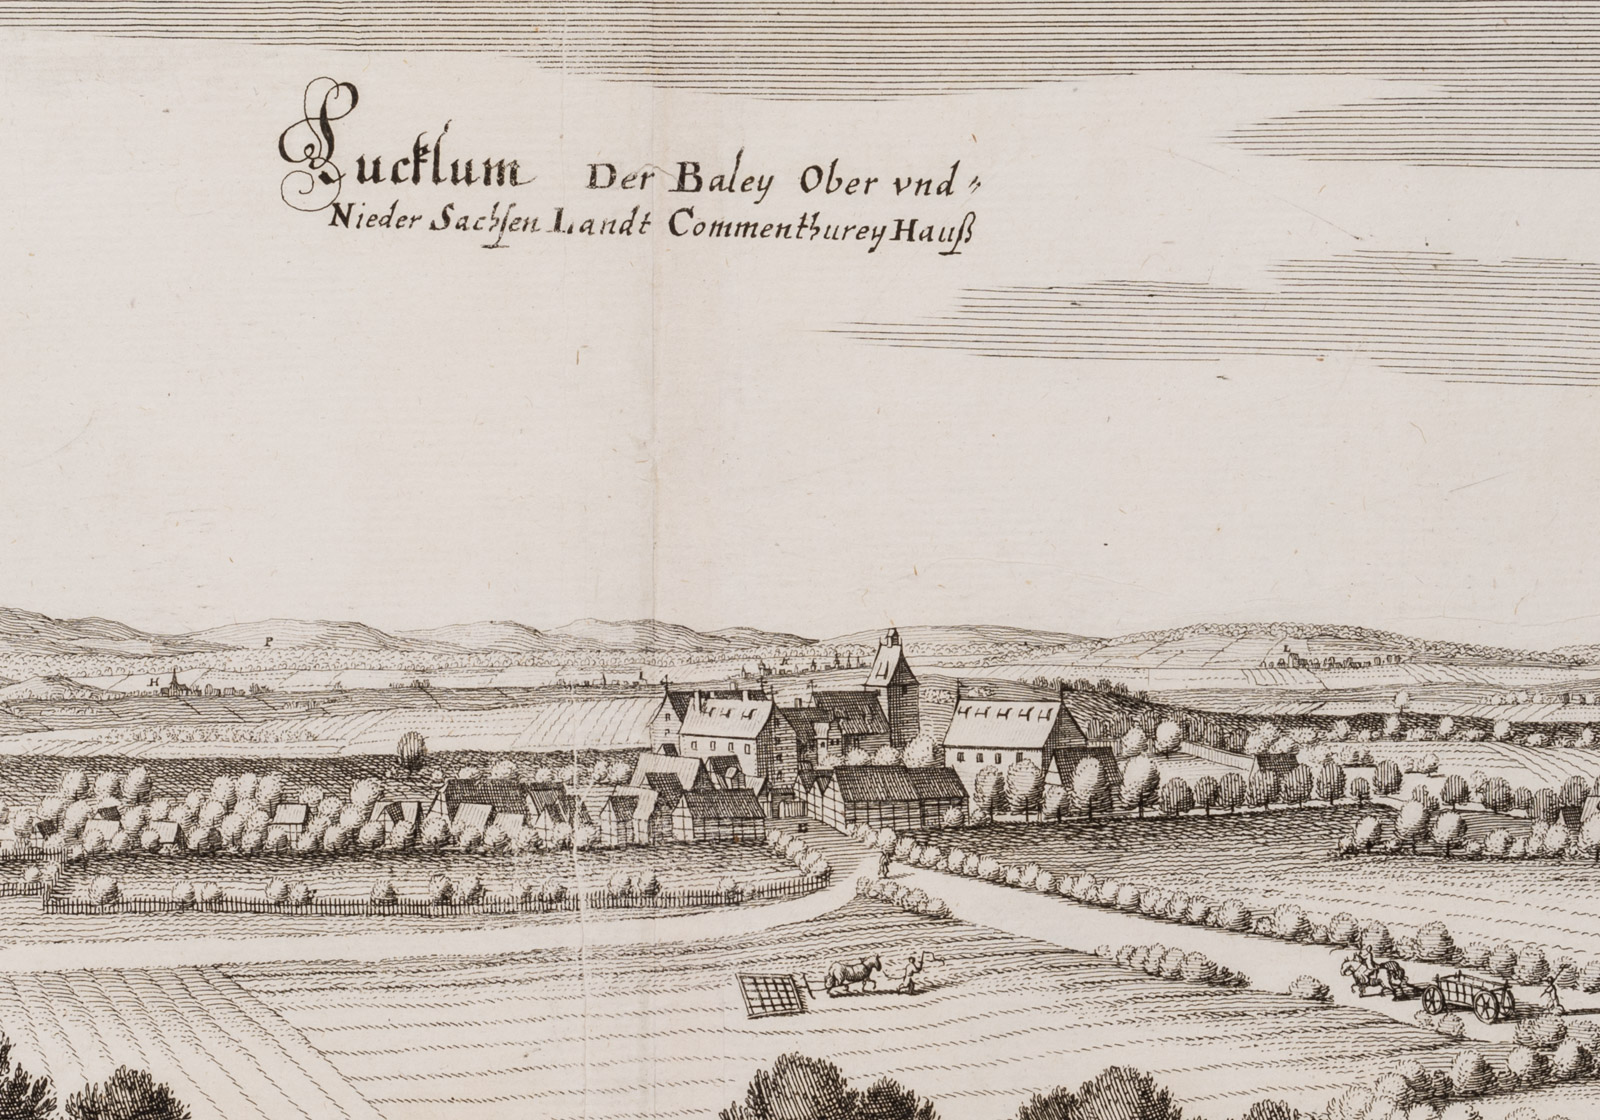 Lucklum Der Baley Ober vnd〃
Nieder Sachſen Landt Commenthurey Hauß
P
H
K
L